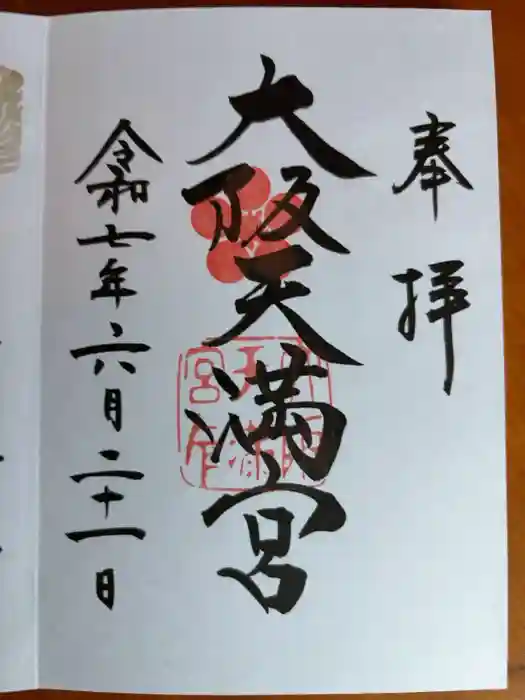 奉拝
大阪天満宮
令和七年六月二十一日